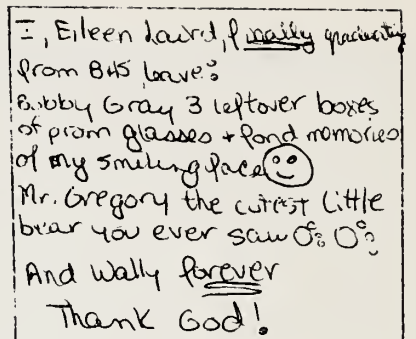 I, Eileen Laird, finally graduating
from BHS leave:
Bubby Gray 3 leftover boxes
of prom glasses + fond memories
of my smiling face
Mr. Gregory the cutest little
bear you ever saw
And Wally forever
Thank God!